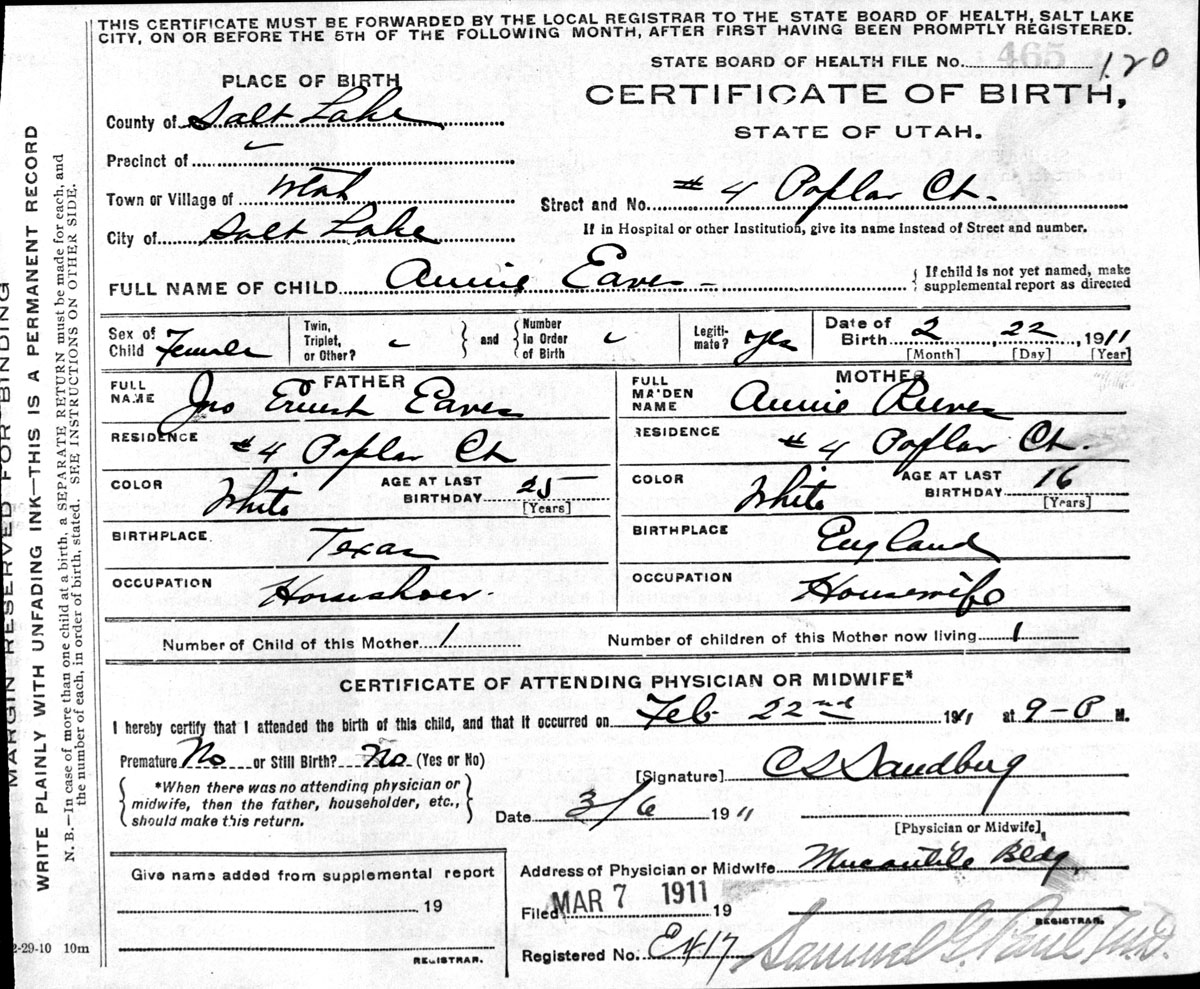 THIS CERTIFICATE MUST BE FORWARDED BY THE LOCAL REGISTRAR TO THE STATE BOARD OF HEALTH, SALT LAKE
CITY, ON OR BEFORE THE 5TH OF THE FOLLOWING MONTH, AFTER FIRST HAVING BEEN PROMPTLY REGISTERED.
STATE BOARD OF HEALTH FILE No. 465 120
PLACE OF BIRTH
CERTIFICATE OF BIRTH,
STATE OF UTAH.
County of Salt Lake
Precinct of
Town or Village of Utah
Street and No. # 4 Poplar Ct.
City of Salt Lake
If in Hospital or other Institution, give its name instead of Street and number.
FULL NAME OF CHILD Annie Eaves
If child is not yet named, make
supplemental report as directed
Sex of Child Female
Twin, Triplet, or Other?
and Number in Order of Birth
Legiti-mate? Yes
Date of Birth 2 22 1911
[Month] [Day] [Year]
FATHER
FULL NAME Jno Ernest Eaves
RESIDENCE # 4 Poplar Ct
COLOR White
AGE AT LAST BIRTHDAY 25 [Years]
BIRTHPLACE Texas
OCCUPATION Horseshoer.
MOTHER
FULL MAIDEN NAME Annie Reeves
RESIDENCE # 4 Poplar Ct.
COLOR White
AGE AT LAST BIRTHDAY 16 [Years]
BIRTHPLACE England
OCCUPATION Housewife
Number of Child of this Mother 1 Number of children of this Mother now living 1
CERTIFICATE OF ATTENDING PHYSICIAN OR MIDWIFE*
I hereby certify that I attended the birth of this child, and that it occurred on Feb 22nd 1911 at 9-P M.
Premature No or Still Birth? No (Yes or No)
[Signature] CS Sandberg
*When there was no attending physician or
midwife, then the father, householder, etc.,
should make this return.
Date 3/6 1911
[Physician or Midwife]
Give name added from supplemental report
19
REGISTRAR.
Address of Physician or Midwife Mercantile Bldg.
Filed MAR 7 1911 19
REGISTRAR.
Registered No. E417
Samuel G. Paul M.D.
2-29-10 10m
MARGIN RESERVED FOR BINDING
WRITE PLAINLY WITH UNFADING INK—THIS IS A PERMANENT RECORD
N. B.—In case of more than one child at a birth, a SEPARATE RETURN must be made for each, and
the number of each, in order of birth, stated. SEE INSTRUCTIONS ON OTHER SIDE.